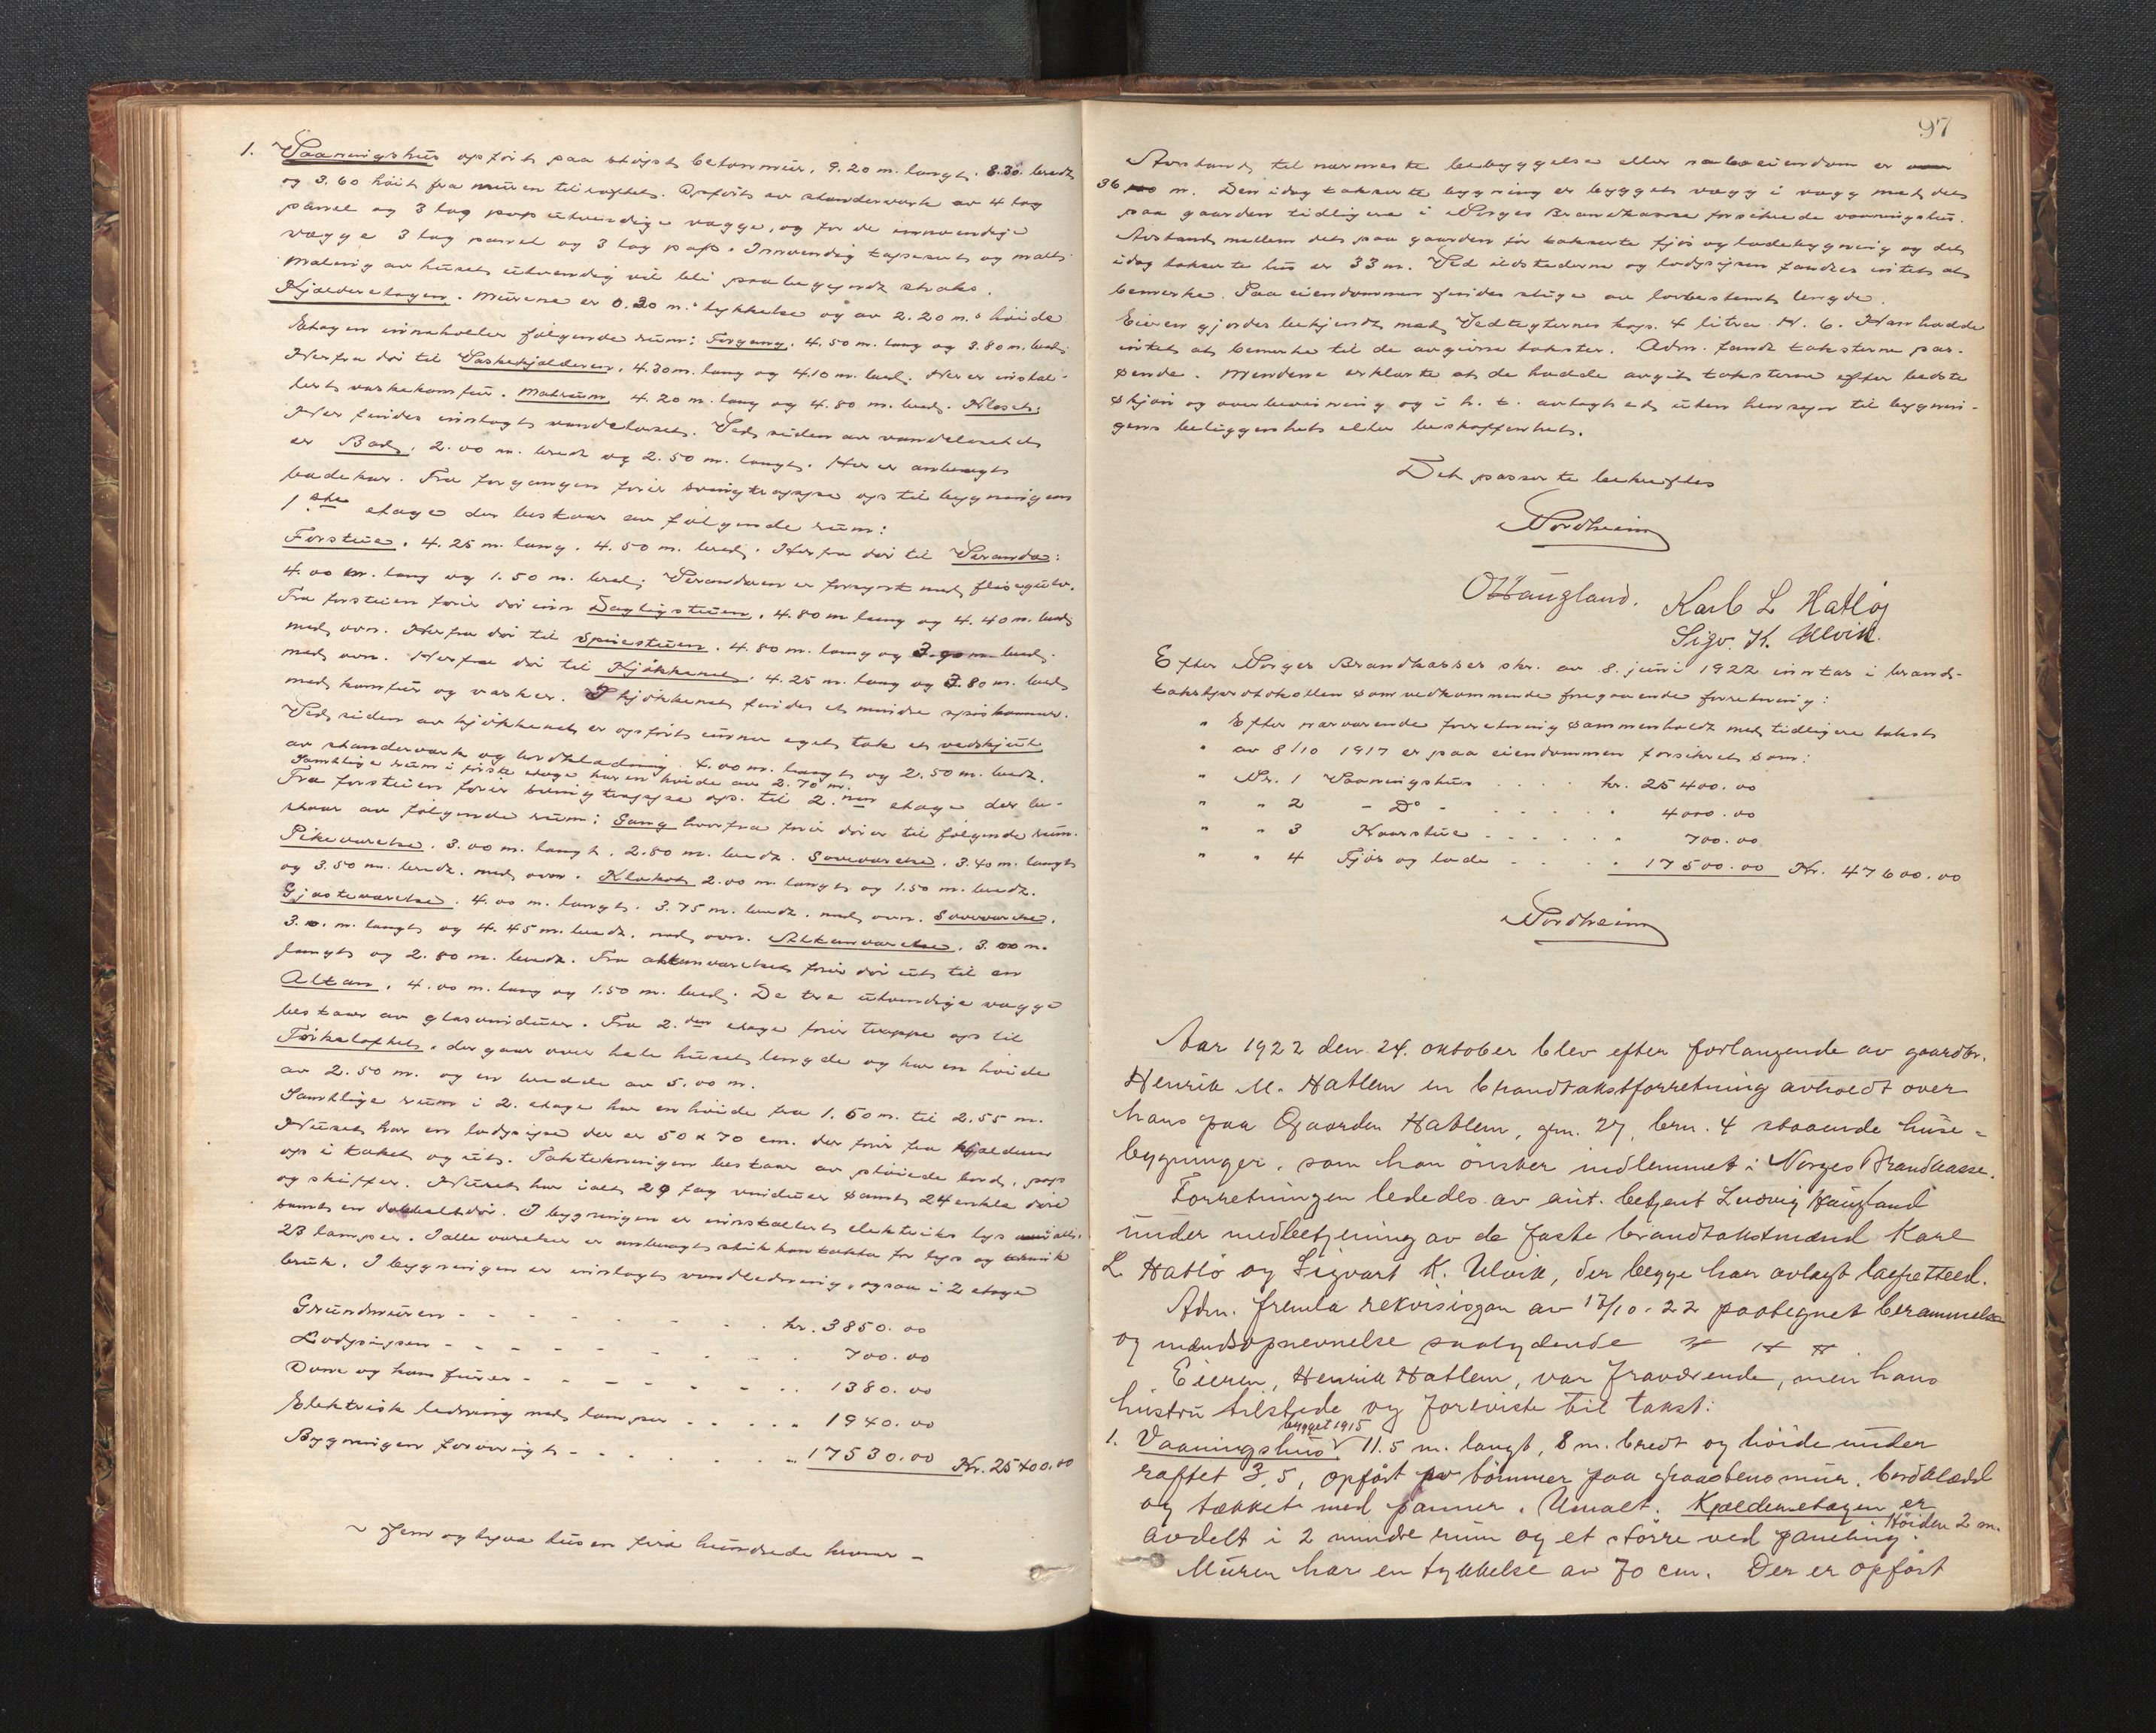 1. Vaaningshus opført paa støpt betonmur, 9.20 m. langt. 8.30 bredt
og 3.60 høit fra muren til raftet. Opført av standerverk av 4 lag
panel og 3 lag pap utvendige vægge, og for de innvendige
vægge 3 lag panel og 3 lag pap. Innvendig tapesert og malt.
Maling av huset utvendig vil bli paabegyndt straks.
Kjælderetagen. Murene er 0.30 m.s tykkelse og av 2.20 m.s høide
Etagen inneholder følgende rum: Forgang. 4.50 m. lang og 3.80 m. bred.
Herfra dør til Vaskekjælderen. 4.30 m. lang og 4.10 m. bred. Her er instal-
lert vaskekomfur. Matrum 4.20 m. lang og 4.80 m. bred. Kloset:
Her findes innlagt vandcloset. Ved siden av vandclosettet
er Bad. 2.00 m. bredt og 2.50 m. langt. Her er anbragt
badekar. Fra forgangen fører svingtrappe op til bygningens
1ste etage der bestaar av følgende rum:
Forstue. 4.25 m. lang. 4.50 m. bred. Herfra dør til Veranda:
4.00 m. lang og 1.50 m. bred. Verandaen er forsynt med flisegulv.
Fra forstuen fører dør inn Dagligstuen. 4.80 m lang og 4.40 m. bred
med ovn. Herfra dør til Spisestuen. 4.80 m. lang og 3.90 m bred.
med ovn. Herfra dør til Kjøkkenet. 4.25 m. lang og 3.80 m. bred
med komfur og vasker. I kjøkkenet findes et mindre spiskammer.
Ved siden av kjøkkenet er opført under eget tak et vedskjul
av standerverk og bordkledning. 4.00 m. langt og 2.50 m. bredt.
Samtlige rum i første etage har en høide av 2.70 m.
Fra forstuen fører svingtrappe op. til 2.nen etage der be-
staar av følgende rum: Gang hvorfra fører dører til følgende rum.
Pikeværelse. 3.00 m. langt. 2.80 m. bredt. Soveværelse. 3.40 m. langt
og 3.50 m. bredt. med ovn. Kloset 2.00 m. langt og 1.50 m. bredt.
Gjesteværelse. 4.00 m. langt. 3.75 m. bredt. med ovn. Soveværelse.
3. m. langt og 4.45 m. bredt. med ovn. Altanværelse. 3.00 m.
langt og 2.80 m. bredt. Fra altanværelset fører dør ut til en
Altan. 4.00 m. lang og 1.50 m. bred. De tre utvendige vægge
bestaar av glasvinduer. Fra 2.den etage fører trappe op til
Tørkeloftet. der gaar over hele husets lengde og har en høide
av 2.50 m. og en bredde av 5.00 m.
Samtlige rum i 2. etage har en høide fra 1.60 m. til 2.55 m.
Huset har en lodpipe der er 50 x 70 cm. der fører fra kjælderen
op i taket og ut. Taktekningen bestaar av pløiede bord, pap
og skiffer. Huset har ialt 29 fag vinduer samt 24 enkle døre
samt en dobbeltdør. I bygningen er innstallert elektrisk lys
23 lamper. I alle værelser er anbragt stikkontakter for lys og teknisk
bruk. I bygningen er innlagt vandledning, ogsaa i 2 etage
Grundmuren - - - - - - - kr. 3850.00
Lodpipen - - - - - - - 700.00
Ovne og komfurer - - - - - - 1380.00
Elektrisk ledning med lamper - - - - - 1940.00
Bygningen forøvrigt - - - - - - 17530.00 Kr. 25400.00
~ Fem og tyve tusen fire hundrede kroner -
97
Avstand til nærmeste bebyggelse eller naboeiendom er
36 m. Den idag takserte bygning er bygget vegg i vegg med det
paa gaarden tidligere i Norges Brandkasse forsikrede vaaningshus.
Avstand mellem det paa gaarden før takserte fjøs og ladebygning og det
idag takserte hus er 33 m. Ved ildstederne og lodpipen fandtes intet at
bemerke. Paa eiendommen findes stige av lovbestemt lengde.
Eieren gjordes bekjendt med Vedtegternes kap. 4 litra N. 6. Han hadde
intet at bemerke til de avgivne takster. Adm. fandt taksterne pas-
sende. Mendene erklærte at de hadde avgit taksterne efter bedste
skjøn og overbevisning og i h. t. avlagt ed uten hensyn til bygnin-
gens beliggenhet eller beskaffenhet.
Det passerte bekreftes
Nordheim
O Haugland. Karl L Hatløy
Sigv. K. Ulvik.
Efter Norges Brandkasses skr. av 8. juni 1922 inntas i brand-
takstprotokollen som vedkommende foregaaende forretning:
" Efter nærværende forretning sammenholdt med tidligere takst
" av 8/10 1917 er paa eiendommen forsikret som:
" Nr. 1 Vaaningshus . . . kr. 25400.00
" " 2 - Do - . . . . " 4000.00
" " 3 Kaarstue - - - - - " 700.00
" " 4 Fjøs og lade - - . . " 17500.00 Kr. 47600.00
Nordheim
Aar 1922 den 24. oktober blev efter forlangende av gaardbr.
Henrik M. Hatlem en brandtakstforretning avholdt over
hans paa Gaarden Hatlem, gnr. 27, brn. 4 staaende huse-
bygninger, som han ønsker indlemmet i Norges Brandkasse.
Forretningen lededes av aut. betjent Ludvig Haugland
under medbetjening av de faste brandtakstmænd Karl
L Hatlø og Sigvart K. Ulvik, der begge har avlagt lagretteed.
Adm. fremla rekvisisjon av 17/10.22 paategnet berammelse
og mandsopnevnelse saalydende # # #.
Eieren, Henrik Hatlem, var fraværende, men hans
hustru tilstede og foreviste til takst:
bygget 1915
1. Vaaningshus √ 11.5 m. langt, 8 m. bredt og høide under
raftet 3,5, opført av tømmer paa graastensmur. bordklædd
og tækket med panner. Umalt. Kjælderetagen er
Høiden 2 m.
avdelt i 2 mindre rum og et større ved paneling.
Muren har en tykkelse av 70 cm. Der er opført